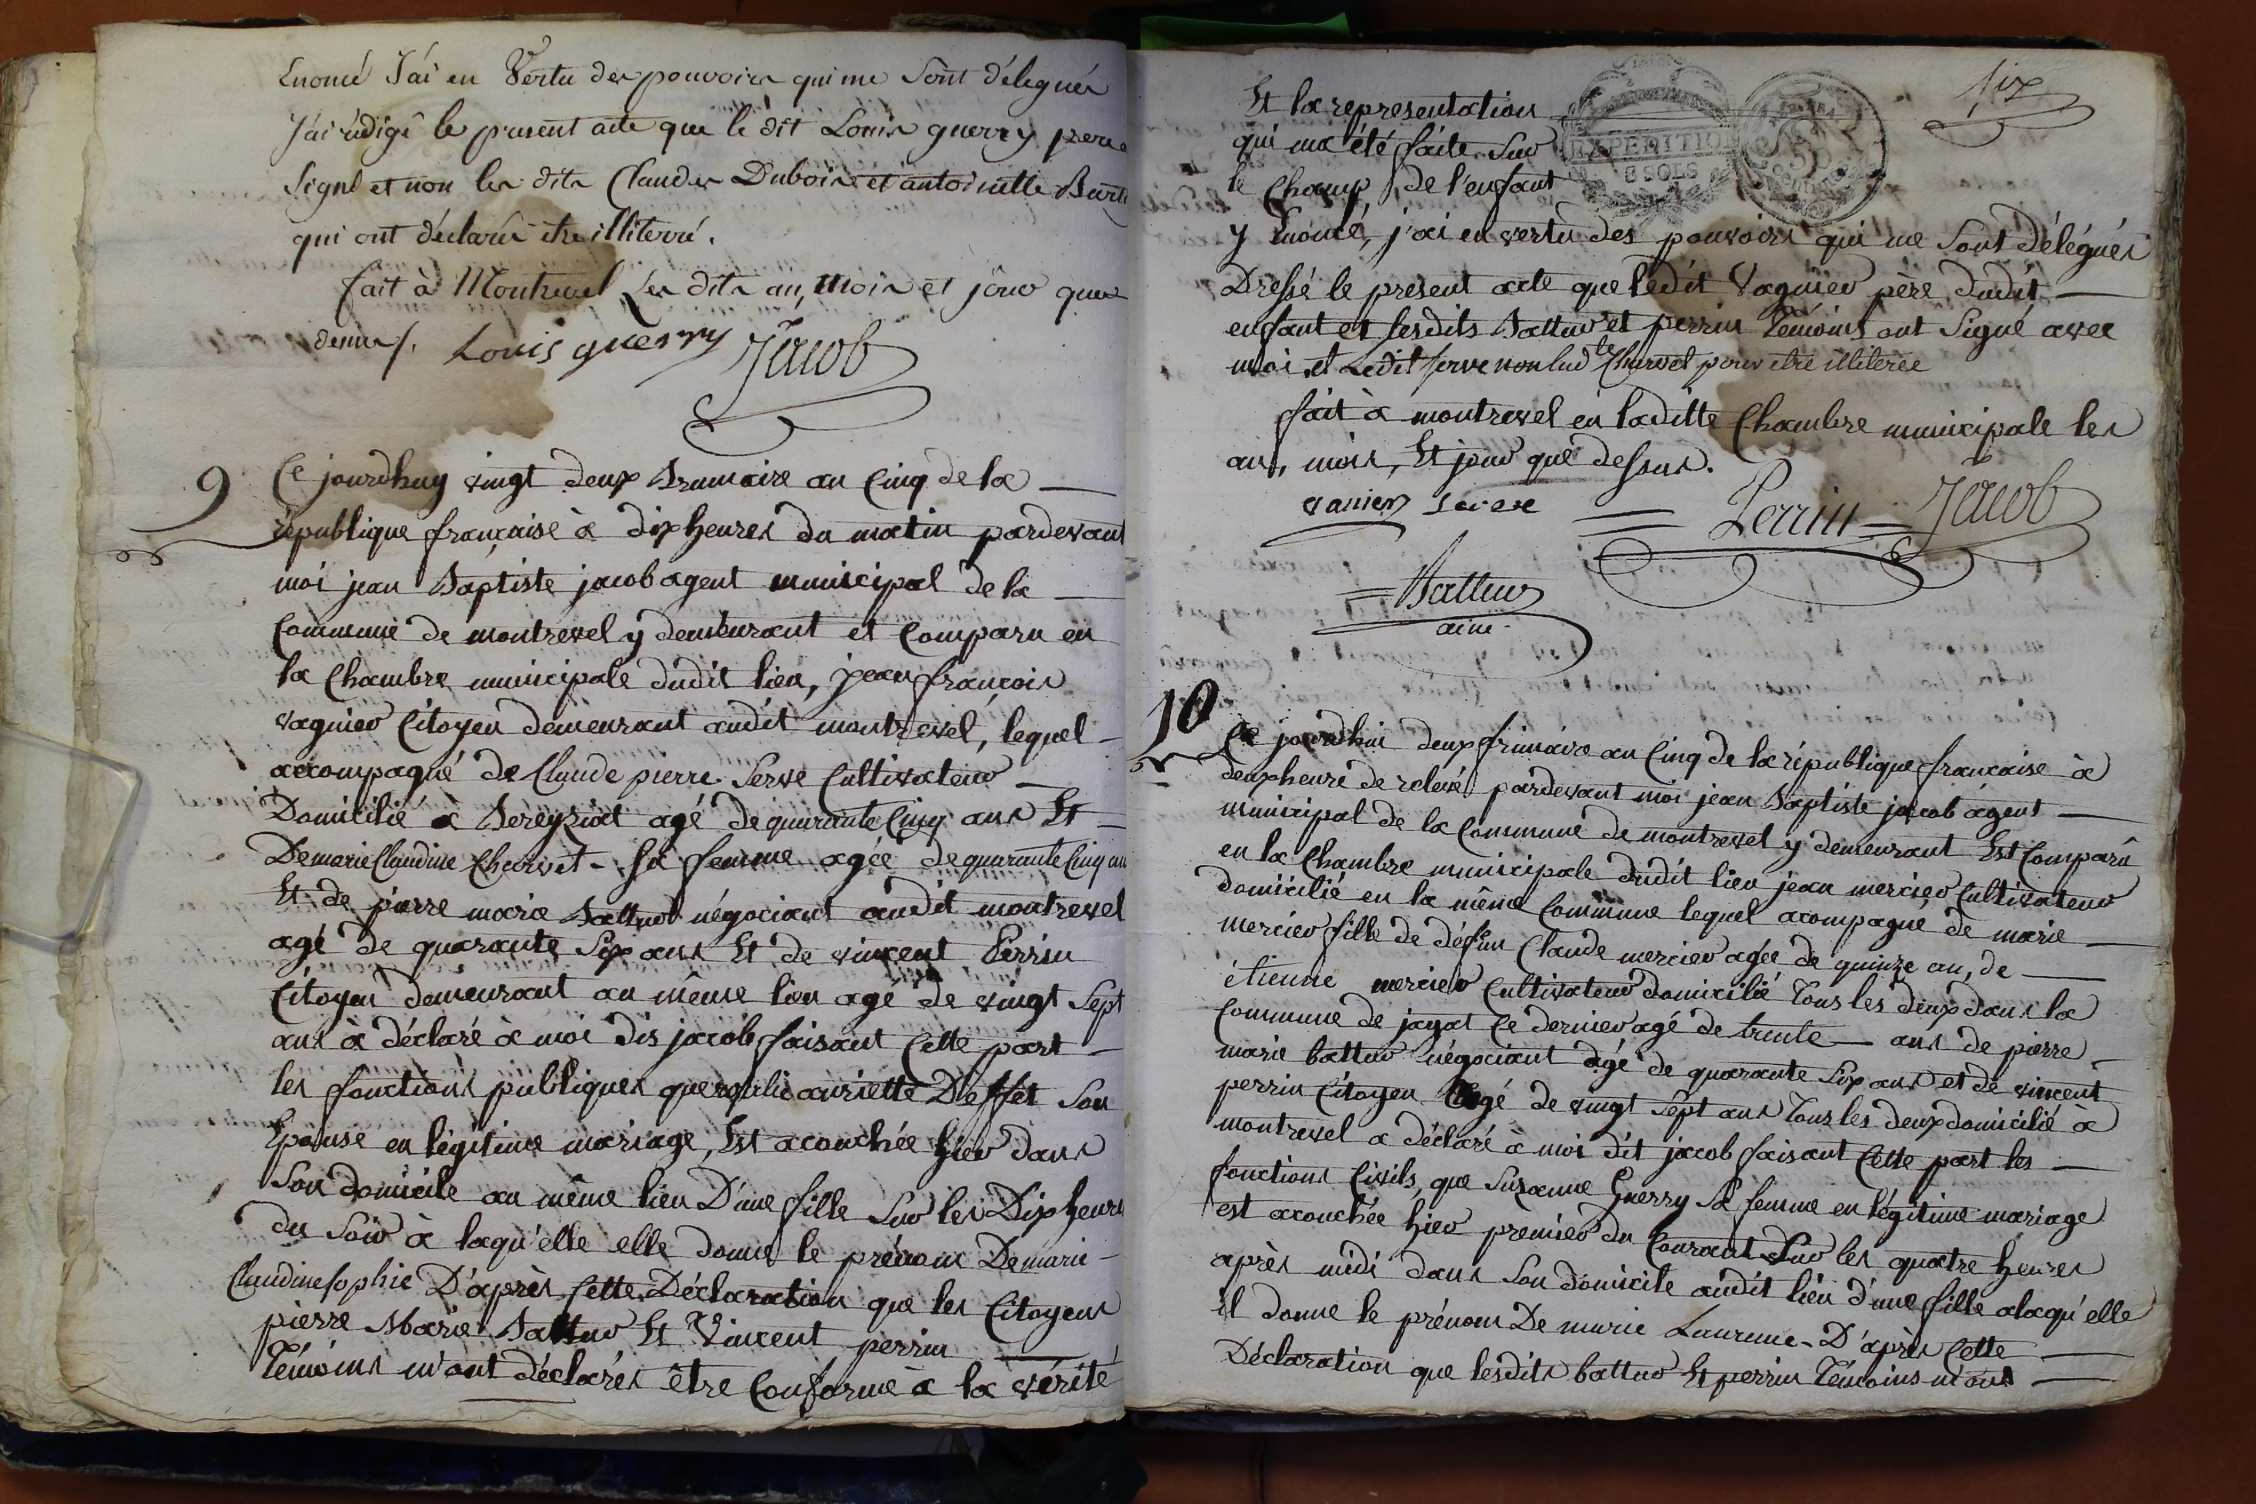 Enoncé J'ai en Vertu des pouvoirs qui me sont délegués
J'ai rédigé le présent acte que le dit Louis guerry pere a
signé et non les dits Claudes Dubois et antoinette
qui ont déclarés etre illiterré.
fait à Montrevel Les dits an, mois et jour que
dessus. Louis guerry Jacob
9
Ce jourdhuy vingt deux Brumaire an Cinq de la
république française à dix heures du matin pardevant
moi jean Baptiste jacob agent municipal de la
Commune de montrevel y demeurant et Comparu en
la Chambre municipale dudit lieu, jean françois
vagnier Citoyen demeurant audit montrevel, lequel
accompagné de Claude pierre Serve Cultivateur
Domicilié a Béréyziat agé de quarante Cinq ans Et
De marie Claudine Charvet sa femme agée de quarante Cinq ans
Et de pierre marie Battur négociant audit montrevel
agé de quarante Six ans Et de vincent Perrin
Citoyen demeurant au même lieu agé de vingt Sept
ans à déclaré à moi dis jacob faisant Cette part
les fonctions publiques que julie auriette Deffet Son
Epouse en légitime mariage, Est acouchée hier dans
Son domicile au même lieu D'une fille Sur les Dix heures
du Soir à laqu'elle elle donne le prénom De marie
Claudine sophie D'après Cette Déclaration que les Citoyens
pierre Marie Battur Et Vincent perrin
Témoins m'ont déclarés être Conforme à la vérité
six
Et la representation
qui ma été faite Sur
le Champ, de l'enfant
EXPEDITION
8 SOLS
y Enoncé, j'ai en vertu des pouvoirs qui me Sont délégués
Dressé le présent acte que ledit Vagnier père dudit
enfant et lesdits Battur et perrin Témoins ont Signé avec
moi, et Ledit serve non lad.te Charvet pour etre illiterée
fait à montrevel en laditte Chambre municipale les
an, mois, Et jour que dessus.
vanier serve Perrin Jacob
Battur
ainé
10
Ce jourdhui deux frimaire an Cinq de la république française à
deux heure de relevé pardevant moi jean Baptiste jacob agent
municipal de la Commune de montrevel y demeurant Est Comparû
en la Chambre municipale dudit lieu jean mercier Cultivateur
domicilié en la même Commune lequel acompagné de marie
mercier fille de défun Claude mercier agée de quinze an, de
étienne mercier Cultivateur domicilié Tous les deux dans la
Commune de jayat Ce dernier agé de trente ans de pierre
marie battur négociant agé de quarante Six ans et de vincent
perrin Citoyen agé de vingt Sept ans Tous les deux domicilié à
montrevel a déclaré à moi dit jacob faisant Cette part les
fonctions Civils, que Suzanne Guerry Sa femme en légitime mariage
est acouchée hier premier du Courant Sur les quatre heures
après midi dans Son domicile audit lieu d'une fille alaqu'elle
il donne le prénom De marie Laurence D'après Cette
Déclaration que lesdits battur Et perrin Témoins m'ont